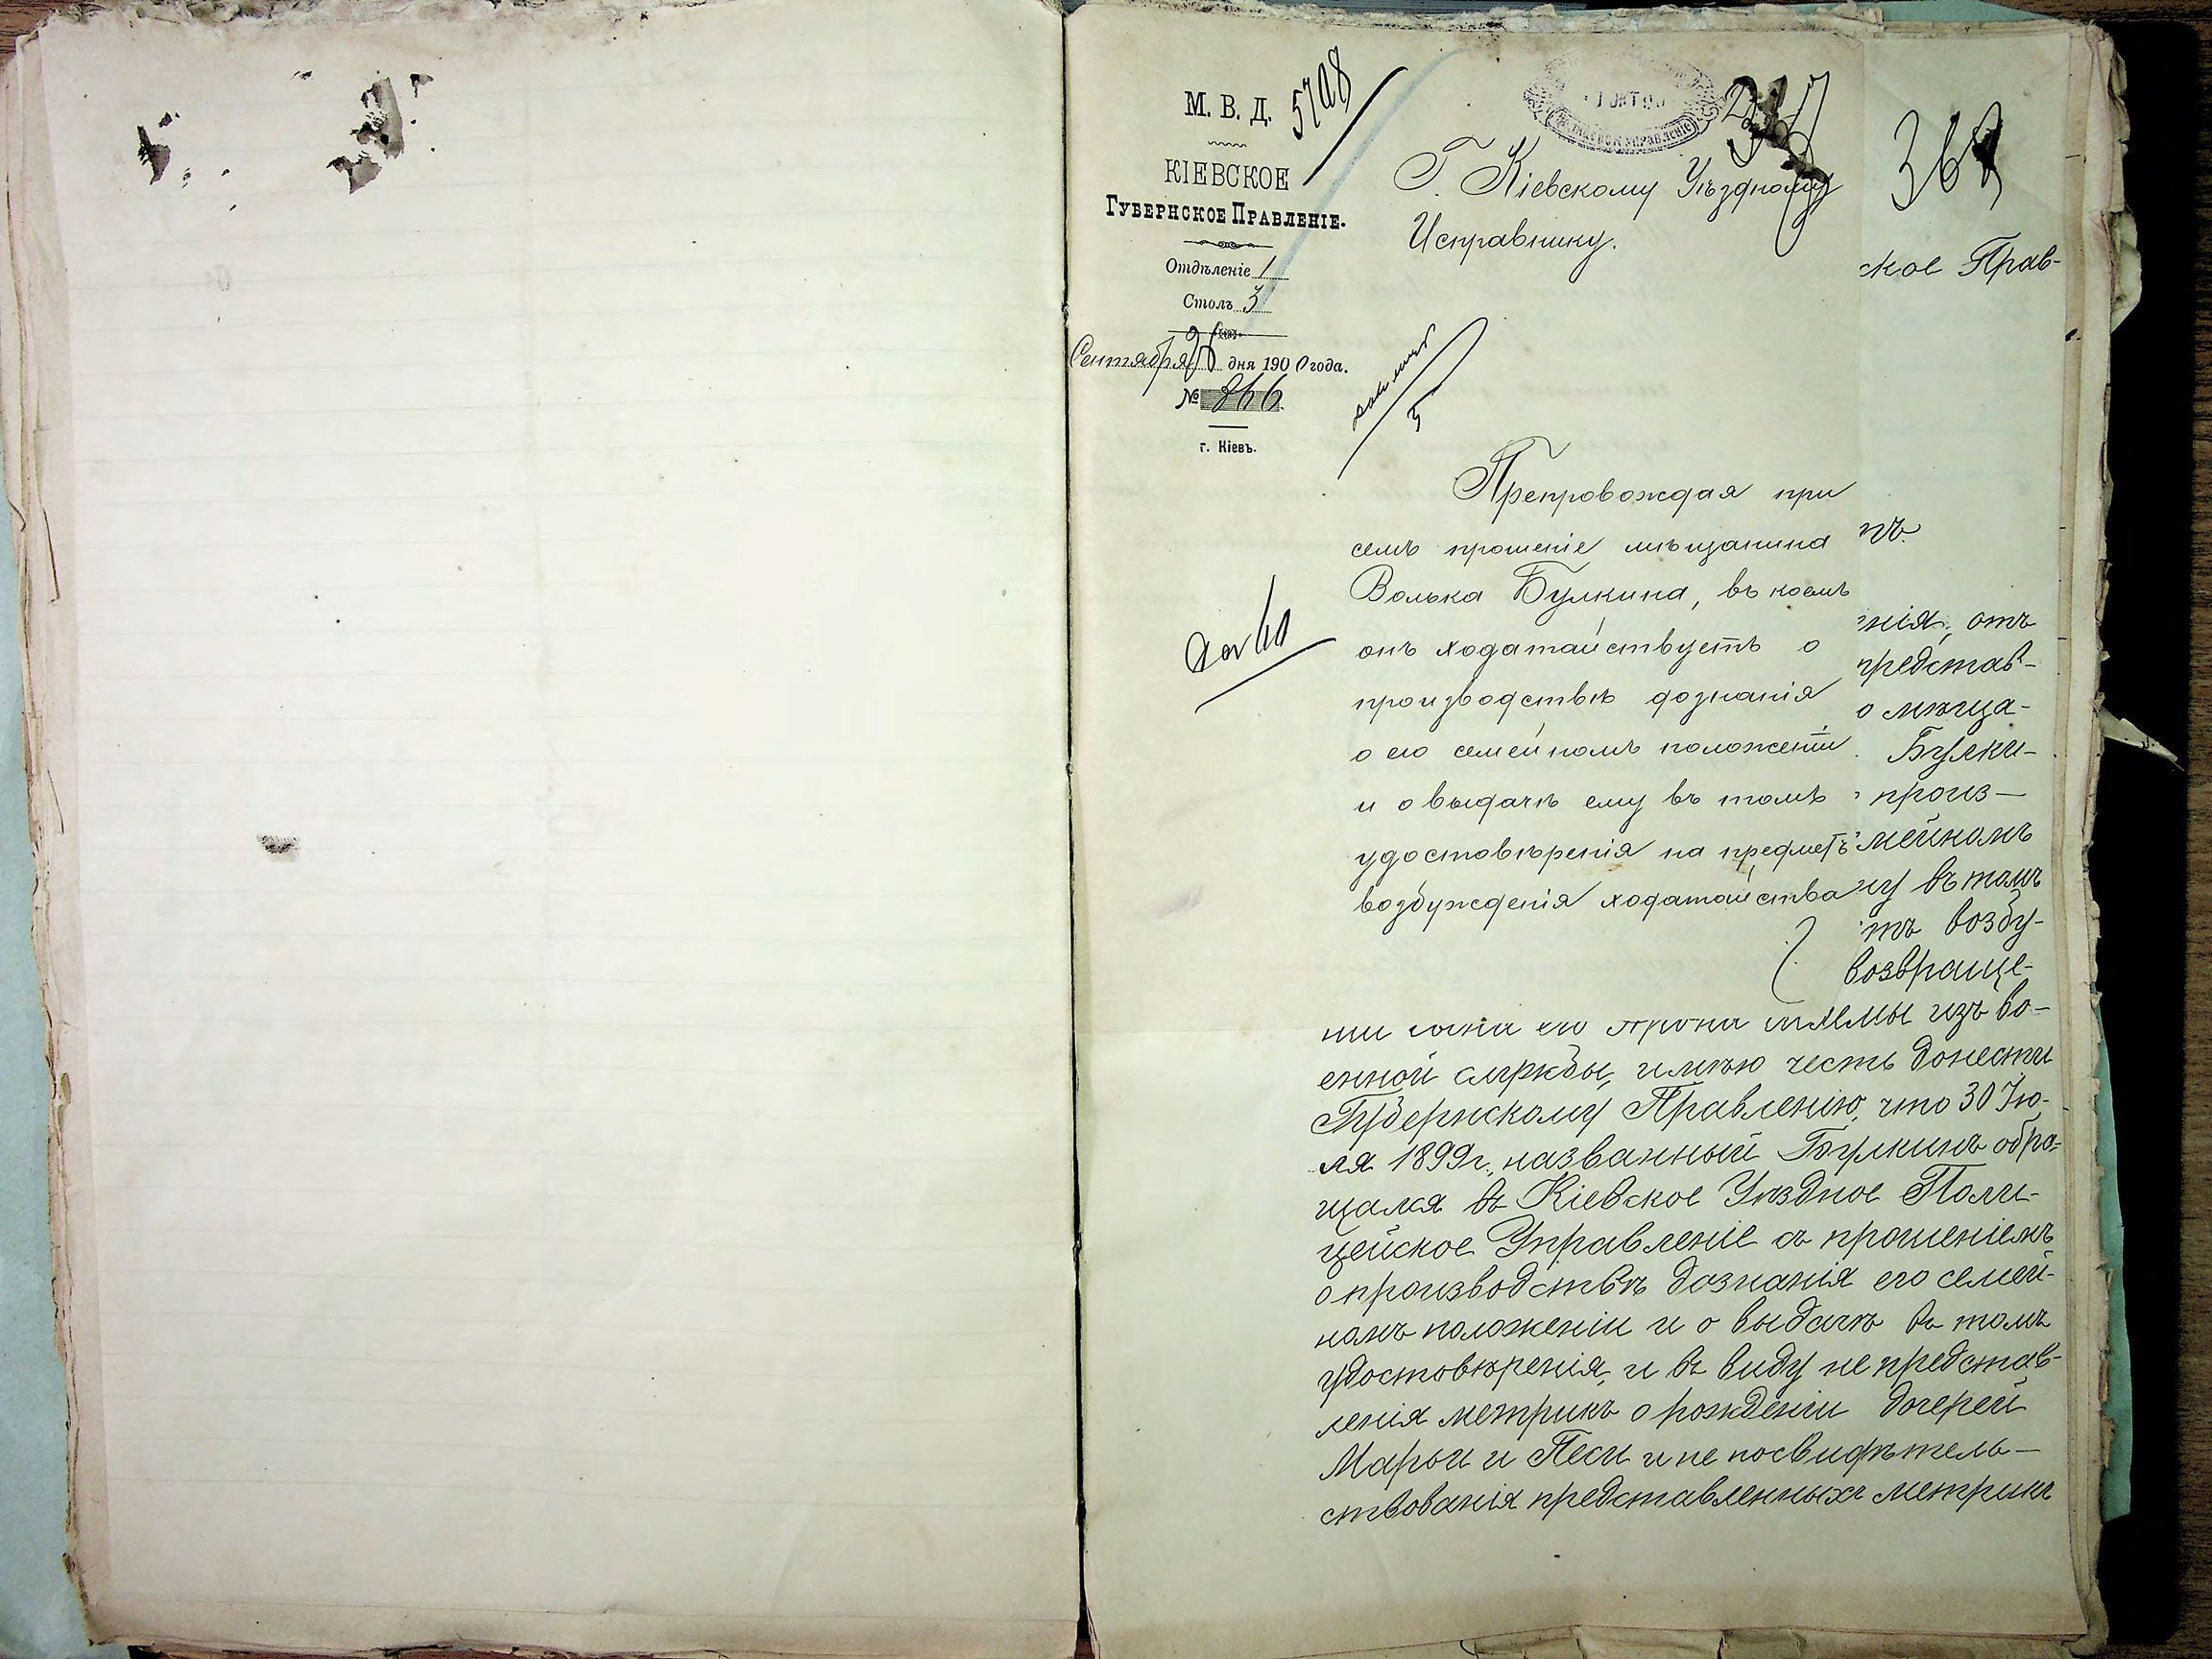 М. В. Д.
КІЕВСКОЕ
ГУБЕРНСКОЕ ПРАВЛЕНІЕ.
Отдѣленіе 1
Столъ 3
Сентября 26 дня 1900 года.
№ 866.
г. Кіевъ.
5798
1 ОКТ 90
УПРАВЛЕНІЕ
Г. Кіевскому Уѣздному
Исправнику.
Препровождая при
семъ прошеніе мѣщанина
Волька Булкина, въ коемъ
онъ ходатайствуетъ о
производствѣ дознанія
о его семейномъ положеніи
и о выдачѣ ему въ томъ
удостовѣренія на предметъ
возбужденія ходатайства
36
ское Прав-
нія, отъ
представ-
о мѣща-
Булки-
произ-
мейномъ
му въ томъ
тъ возбу-
возвраще-
нии сына его изъ во-
енной службы, имѣю честь донести
Губернскому Правленію, что 30 Iю-
ля 1899 г., названный Булкинъ обра-
щался въ Кіевское Уѣздное Поли-
цейское Управленіе съ прошеніемъ
о производствѣ дознанія его семей-
номъ положеніи и о выдачѣ въ томъ
удостовѣренія, и въ виду не представ-
ленія метрикъ о рожденіи дочерей
Марьи и Песи и не посвидѣтель-
ствованія представленныхъ метрикъ